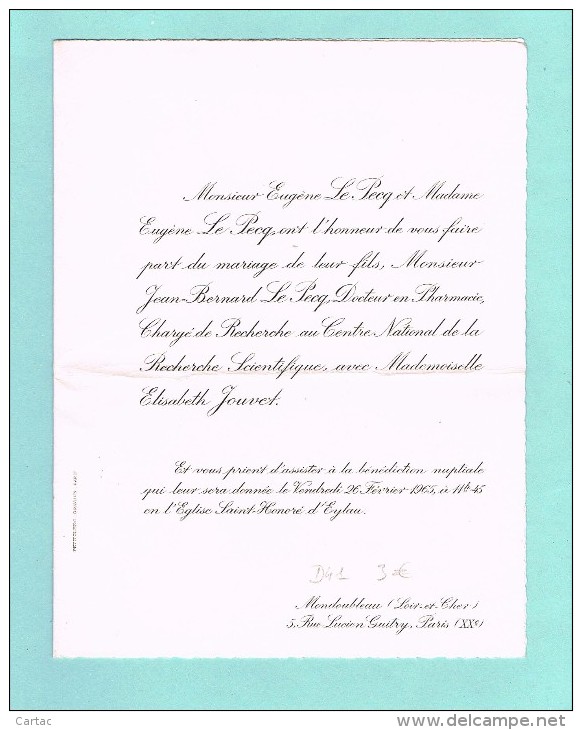 Monsieur Eugène Le Pecq et Madame
Eugène Le Pecq, ont l'honneur de vous faire
part du mariage de leur fils, Monsieur
Jean-Bernard Le Pecq, Docteur en Pharmacie,
Chargé de Recherche au Centre National de la
Recherche Scientifique, avec Mademoiselle
Elisabeth Jouvet.
Et vous prient d'assister à la bénédiction nuptiale
qui leur sera donnée le Vendredi 26 Février 1965, à 11h45
en l'Eglise Saint-Honoré d'Eylau.
D41 3€
Mondoubleau (Loir-et-Cher)
5, Rue Lucien Guitry, Paris (XXe)
Cartac
www.delcampe.net